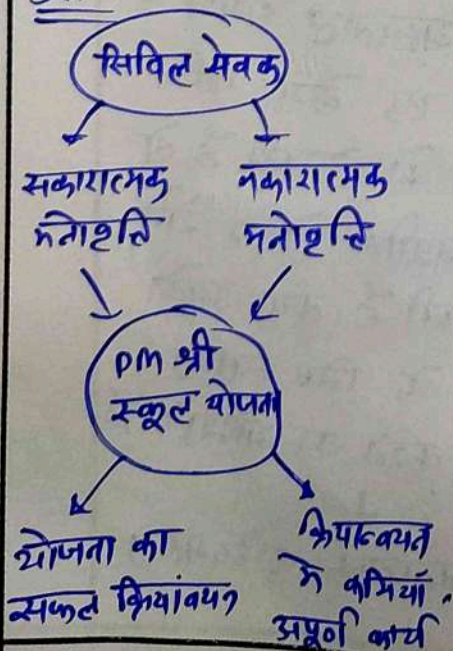 सिविल सेवक
सकारात्मक
मनोवृत्ति
नकारात्मक
मनोवृत्ति
PM श्री
स्कूल योजना
योजना का
सफल क्रियांवयन
क्रियान्वयन
में कमियाँ,
अपूर्ण कार्य